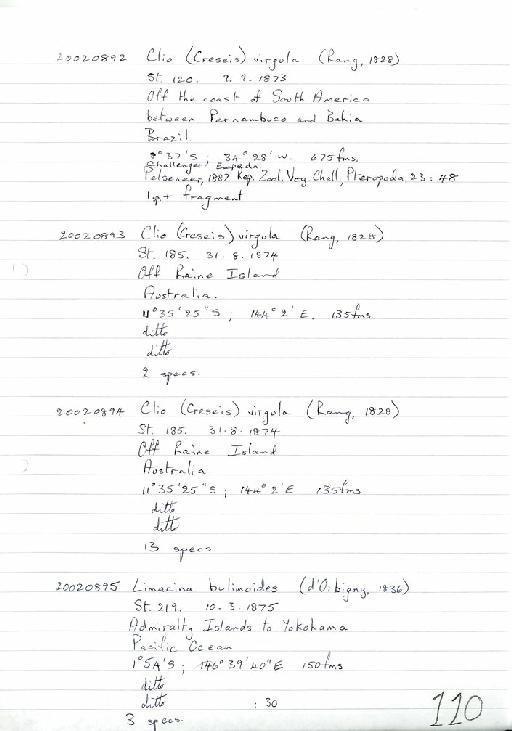 20020892 Clio (Creseis) virgula (Rang, 1828)
St. 120. 9. 9. 1873
Off the coast of South America
between Pernambuco and Bahia
Brazil
8°37'S, 34°28'W. 675fms.
Challenger Expedn
Pelseneer, 1887 Rep. Zool. Voy. Chall, Pteropoda 23: 48
1sp+ fragment
20020893 Clio (Creseis) virgula (Rang, 1828)
St. 185. 31. 8. 1874
Off Raine Island
Australia.
11°35'25"S, 144°2'E. 135fms
ditto
ditto
2 specs.
20020894 Clio (Creseis) virgula (Rang, 1828)
St. 185. 31. 8. 1874
Off Raine Island
Australia
11°35'25"S; 144°2'E 135fms
ditto
ditto
13 specs
20020895 Limacina bulimoides (d'Orbigny, 1836)
St. 219. 10. 3. 1875
Admiralty Islands to Yokohama
Pacific Ocean
1°54'S; 146°39'40"E 150fms
ditto
ditto : 30
3 specs.
110